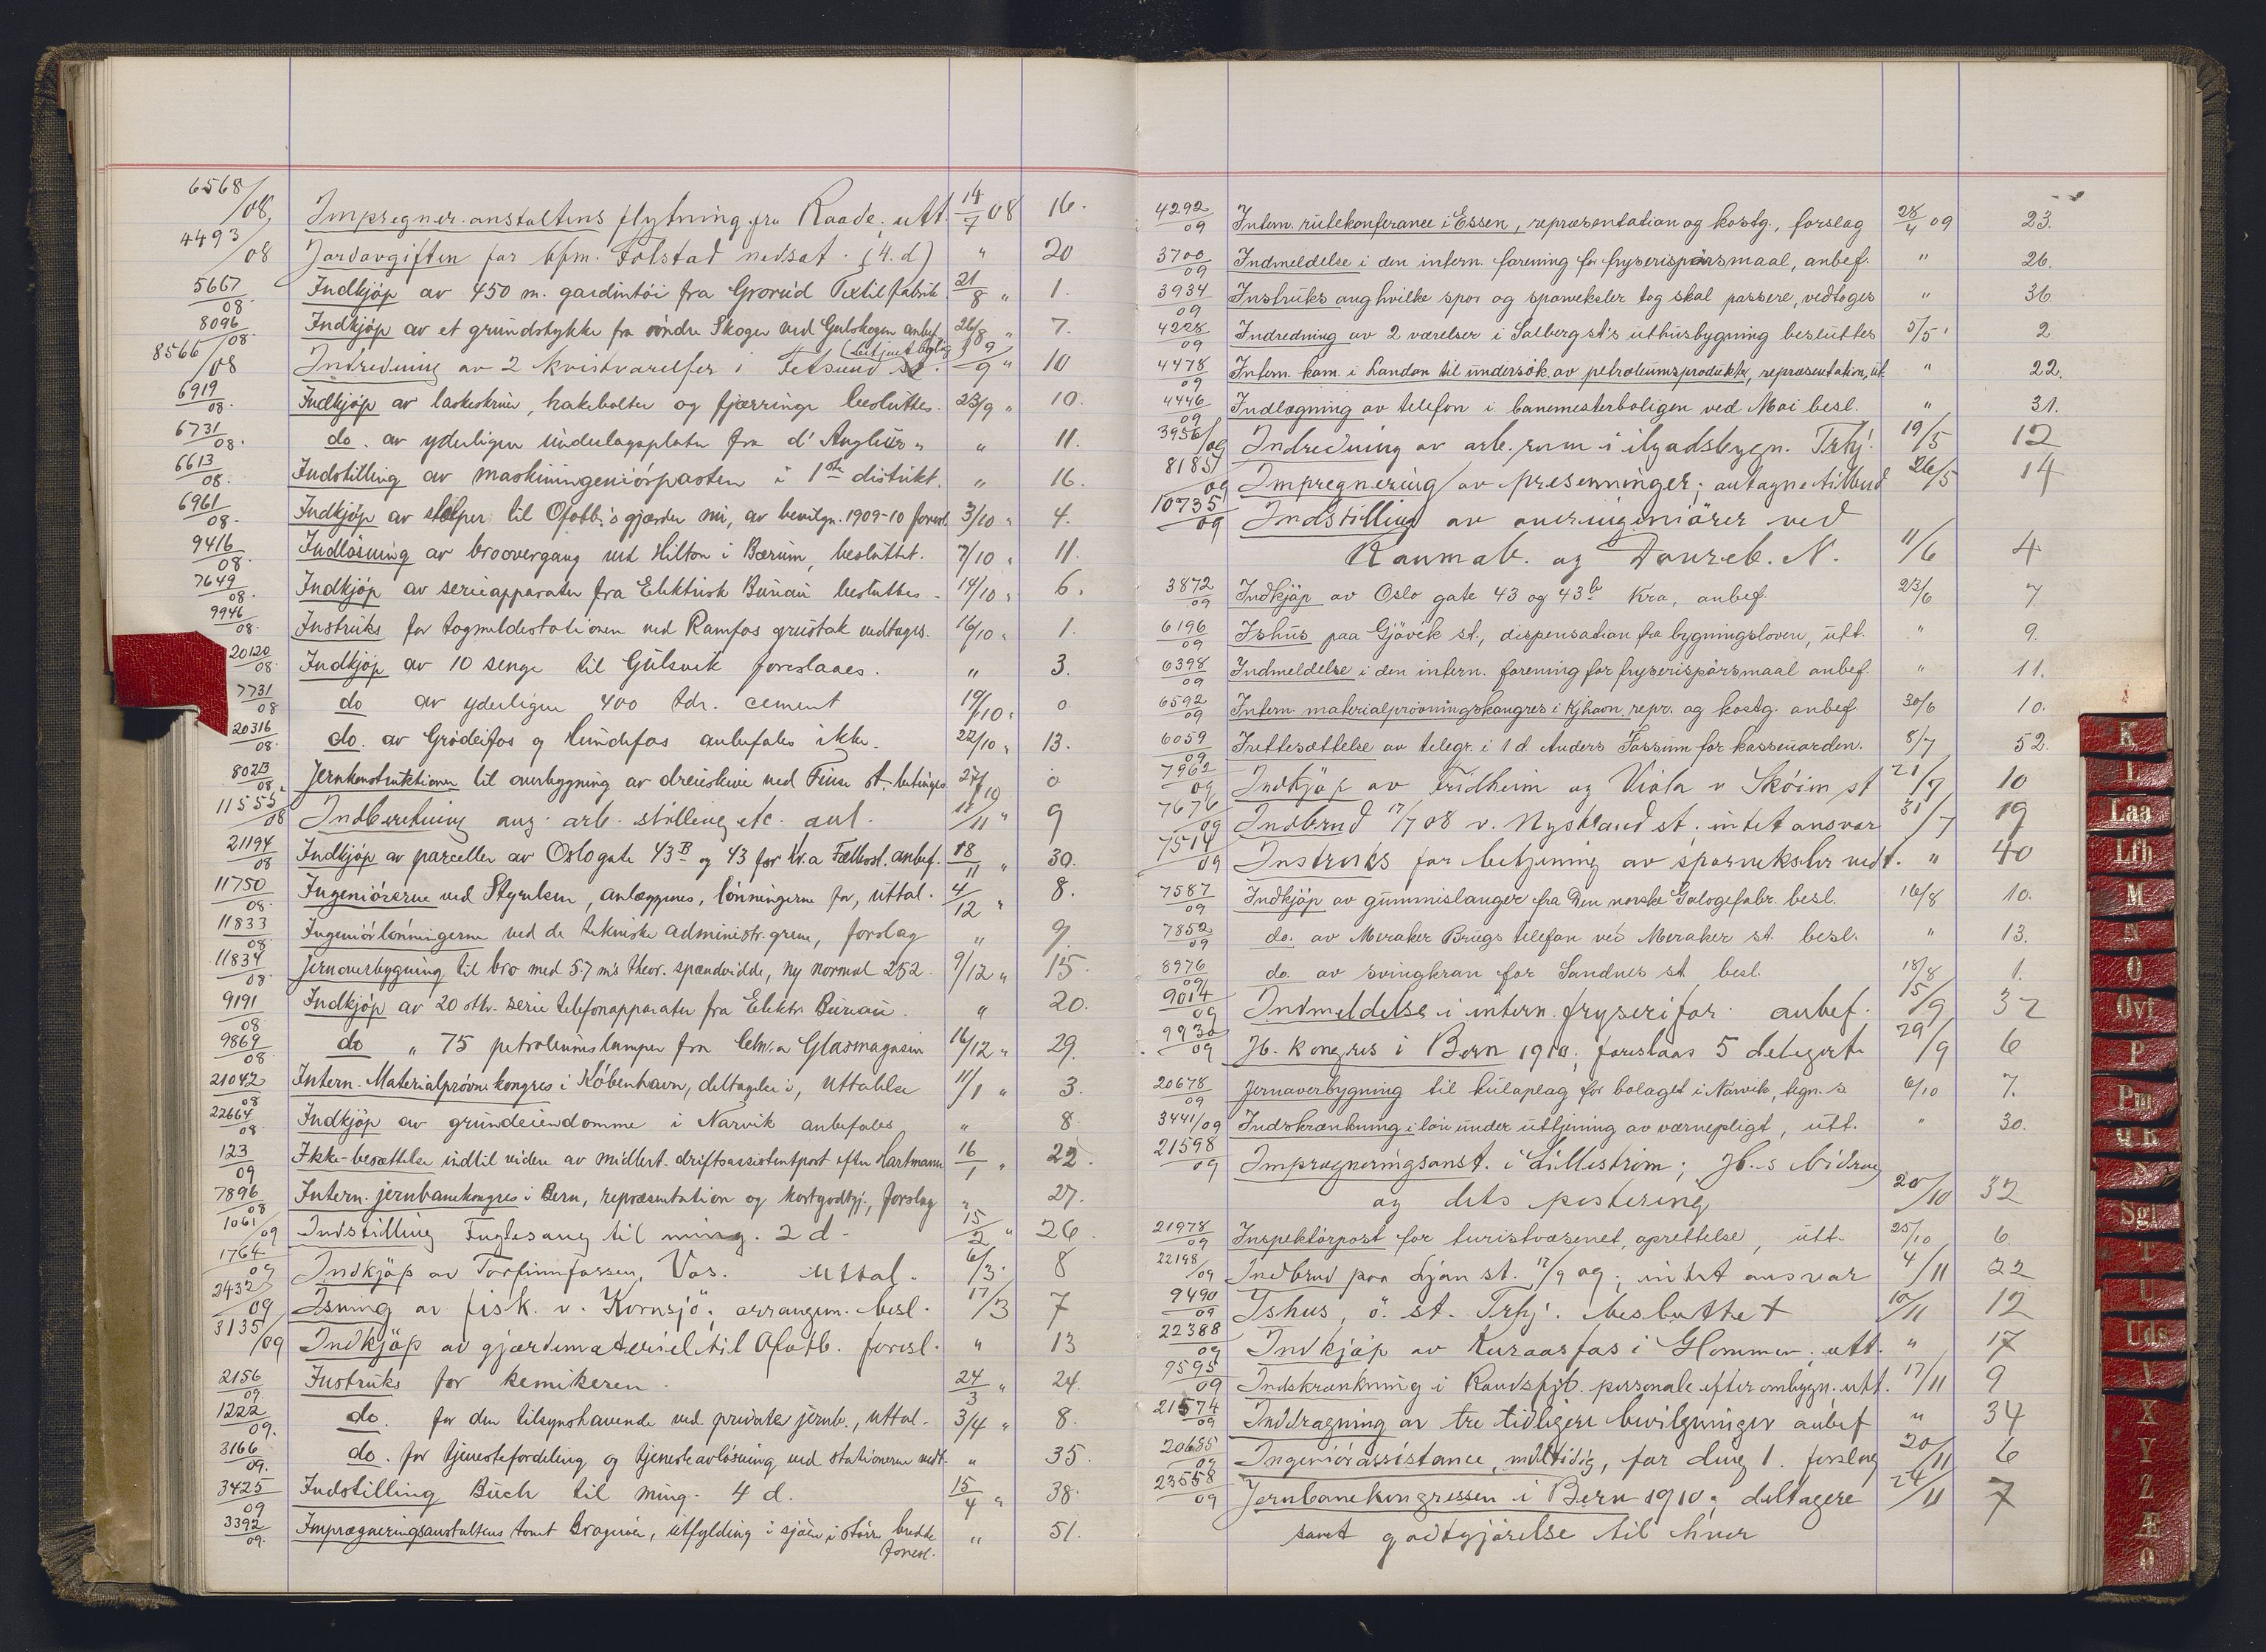 6568/08 Impregner. anstaltens flytning fra Raade, utt. 14/7 08 16.
4493/08 Jordavgiften for bfm. Folstad nedsat. (4. d) " 20
5667/08. Indkjöp av 450 m. gardintöi fra Grorud Textilfabrik. 21/8 " 1.
8096/08. Indkjöp av et grundstykke fra söndre Skoger ved Gulskogen anbef. 26/8 " 7.
8566/08 Indredning av 2 kvistværelser i Fetsund st. 9/9 " 10
6919/08. Indkjöp av laskeskruer, hakebolter og fjærringe besluttes. 23/9 " 10.
6731/08. do. av yderligere underlagsplater fra d'Angleur " " 11.
6613/08. Indstilling av maskiningeniörposten i 1ste distrikt. " 16.
6961/08. Indkjöp av stolper til Ofotb.'s gjærder nu, av bevilgn. 1909-10 foresl. 3/10 " 4.
9416/08. Indlösning av broovergang ved Hilton i Bærum, besluttet. 7/10 " 11.
7649/08. Indkjöp av serieapparater fra Elektrisk Bureau besluttes. 14/10 " 6.
9946/08. Instruks for togmeldestationen ved Ramfos grustak vedtages. 16/10 " 1.
20120/08. Indkjöp av 10 senge til Gulsvik foreslaaes. " 3.
7731/08 do av yderligere 400 tdr. cement 19/10 " 0
20316/08. do. av Grödeifos og Hundefos anbefales ikke. 22/10 " 13.
8023/08. Jernkonstruktioner til overbygning av dreieskive ved Finse st. betinges 27/10 0
11555/08 Indberetning ang. arb. stilling etc. anl. 11/11 " 9
21194/08 Indkjöp av parceller av Oslogate 43B og 43 for Kr.a Fællesst. anbef. 18/11 " 30.
11750/08. Ingeniörerne ved Styrelsen, anlæggenes, lönningerne for, uttal. 4/12 " 8.
11833/08. Ingeniörlönningerne ved de tekniske administr. grene, forslag " 9.
11834/08. Jernoverbygning til bro med 5.7 m's theor. spændvidde, ny normal 252. 9/12 " 15.
9191/08. Indkjöp av 20 stk. serie telefonapparater fra Elektr. Bureau. " 20.
9869/08. do " 75 petroleumslamper fra Chr.a Glasmagasin 16/12 " 29.
21042/08 Intern. Materialprövn. kongres i Köbenhavn, deltagelse i, uttalelse 11/1 " 3.
22664/08 Indkjöp av grundeiendomme i Narvik anbefales " 8.
123/09 Ikke-besættelse indtil videre av midlert. driftsassistentpost efter Hartmann 16/1 " 22.
7896/08 Intern. jernbanekongres i Bern, repræsentation og kostgodtgj., forslag " 27.
1061/09 Indstilling Fuglesang til ming. 2 d. 15/2 " 26.
1764/09 Indkjöp av Torfinnfossen, Vos. Uttal. 6/3. 8
2432/09 Isning av fisk. v. Kornsjö, arrangem. besl. 17/3 7
3135/09 Indkjöp av gjærdemateriel til Ofotb. foresl. " 13
2156/09. Instruks for kemikeren. 24/3 " 24.
1222/09. do. for den tilsynshavende ved private jernb., uttal. 3/4 " 8.
3166/09. do. for tjenestefordeling og tjenesteavlösning ved stationerne vedt. " 35.
3425/09 Indstilling Buch til ming. 4 d. 15/4 " 38.
3392/09. Imprægneringsanstaltens tomt Bragerøen, utfylding i sjöen i större bredde
foresl. " 51.
4292/09 Intern. rutekonferance i Essen, repræsentation og kostg., forslag 28/4 09 23.
3700/09 Indmeldelse i den intern. forening for fryserispørsmaal, anbef. " 26.
3934/09 Instruks ang hvilke spor og sporveksler tog skal passere, vedtages " 36
4228/09 Indredning av 2 værelser i Salberg st's uthusbygning besluttes 5/5 ' 2
4478/09 Intern. kom. i London til undersök. av petroleumsprodukter, repræsentation, ut. " 22.
4446/09 Indlægning av telefon i banemesterboligen ved Moi besl. " 31.
3956/09 Indredning av arb. rum i ilgodsbygn. Trhj. 19/5 12
8185/09 Impregnering av presenninger; antagne tilbud 26/5 14
10735/09 Indstilling av overingeniörer ved
Raumab. og Dovreb. N. 11/6 4
3872/09 Indkjöp av Oslo gate 43 og 43b Kra, anbef. 23/6 7
6196/09 Ishus paa Gjövik st., dispensation fra bygningsloven, utt. " 9.
6398/09 Indmeldelse i den intern. forening for fryserispörsmaal anbef. " 11.
6592/09 Intern. materialprövningskongres i Kjhavn. repr. og kostg. anbef. 30/6 10.
6059/09 Irettesættelse av telegr. i 1 d Anders Fossum for kassenorden. 8/7 52.
7962/09 Indkjöp av Fridheim og Viola v Skòien st 21/7 10
7676/09 Indbrud 17/7 08 v. Nystrand st. intet ansvar 31/7 19
7514/09 Instruks for betjening av sporveksler vedt. " 40
7587/09 Indkjöp av gummislanger fra Den norske Galogefabr. besl. 16/8 10.
7852/09 do. av Meraker Brugs telefon ved Meraker st. besl. " 13.
8976/09 do. av svingkran for Sandnes st besl. 18/8 1.
9014/09 Indmeldelse i intern. fryserifor. anbef. 15/9 32
9930/09 Jb. kongres i Bern 1910; foreslaas 5 delegerte 29/9 6
20678/09 Jernoverbygning til kuloplag for bolaget i Narvik, tegn. s 6/10 7.
3441/09 Indskrænkning i lön under uttjening av værnepligt, utt. " 30.
21598/09 Imprægneringsanst. i Lilleström; Jb.s bidrag
og dets postering 20/10 32
21978/09 Inspektörpost for turistvæsenet, oprettelse, utt. 25/10 6.
22148/09 Indbrud paa Ljan st. 17/9 09; intet ansvar 4/11 22
9490/09 Ishus, ö. st. Trhj. besluttet 10/11 12
22388/09 Indkjöp av Kuraasfos i Glommen; utt. " 17
9595/09 Indskrænkning i Randsfjb. personale efter ombygn. utt. 17/11 9
21574/09 Inddragning av tre tidligere bevilgninger anbef " 34
20685/09 Ingeniörassistance, midltidig, for ding 1. forslag 20/11 6
23558/09 Jernbanekongressen i Bern 1910; deltagere 24/11 7
samt godtgjörelse til hver
K
L
Laa
Lfh
M
N
O
Ovf
P
Pm
Q R
S
Sgl
T
U
Uds
V
X
Y
Z
Æ
Ø